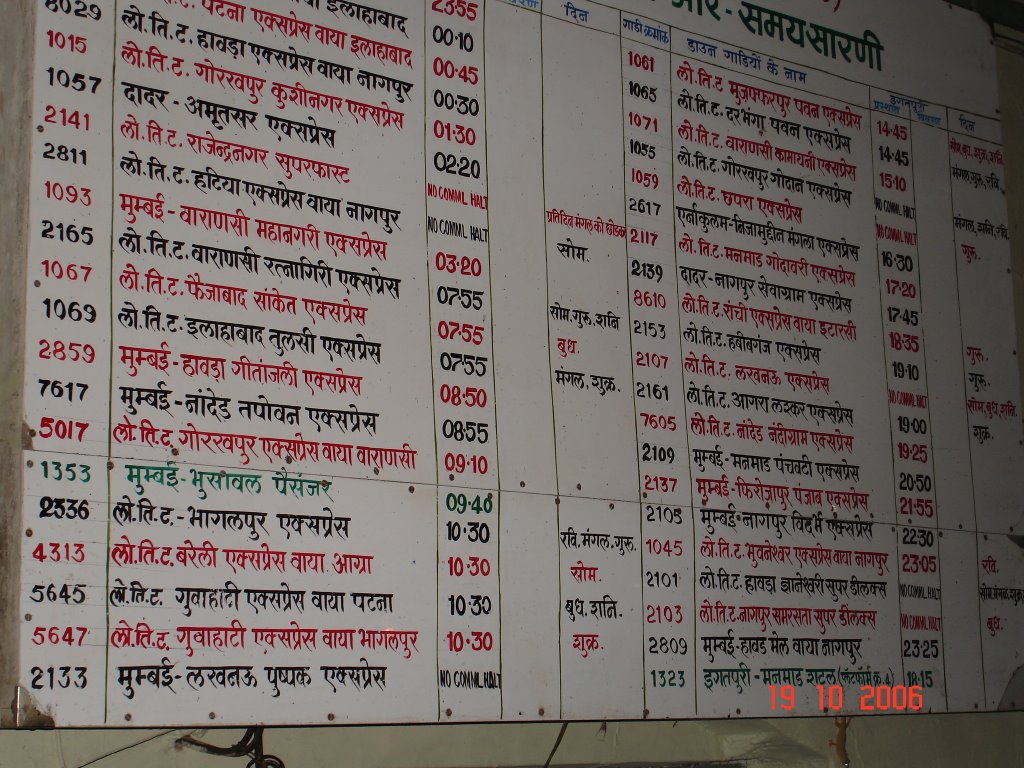 ओर - समयसारणी
दिन
गाडी क्रमांक डाउन गाडियों के नाम इगतपुरी प्रस्थान दिन
वाया इलाहाबाद 23:55
पटना एक्सप्रेस वाया इलाहाबाद 00:10
8029 लो.ति.ट. हावड़ा एक्सप्रेस वाया नागपुर 00:45
1015 लो.ति.ट. गोरखपुर कुशीनगर एक्सप्रेस 00:30
1057 दादर - अमृतसर एक्सप्रेस 01:30
2141 लो.ति.ट. राजेन्द्रनगर सुपरफास्ट 02:20
2811 लो.ति.ट. हटिया एक्सप्रेस वाया नागपुर NO COMML HALT
1093 मुम्बई - वाराणसी महानगरी एक्सप्रेस NO COMML HALT
प्रतिदिन मंगल को छोडकर
सोम.
2165 लो.ति.ट. वाराणसी रत्नागिरी एक्सप्रेस 03:20
1067 लो.ति.ट. फैजाबाद साकेत एक्सप्रेस 07:55
सोम.गुरु.शनि
1069 लो.ति.ट. इलाहाबाद तुलसी एक्सप्रेस 07:55
बुध.
07:55
मंगल.शुक्र.
2859 मुम्बई - हावड़ा गीतांजली एक्सप्रेस 08:50
7617 मुम्बई - नांदेड तपोवन एक्सप्रेस 08:55
5017 लो.ति.ट. गोरखपुर एक्सप्रेस वाया वाराणसी 09:10
1353 मुम्बई - भुसावल पैसंजर 09:40
2336 लो.ति.ट. - भागलपुर एक्सप्रेस 10:30 रवि.मंगल.गुरु.
4313 लो.ति.ट. बरेली एक्सप्रेस वाया आग्रा 10:30 सोम.
5645 लो.ति.ट. गुवाहाटी एक्सप्रेस वाया पटना 10:30 बुध,शनि.
5647 लो.ति.ट. गुवाहाटी एक्सप्रेस वाया भागलपुर 10:30 शुक्र.
2133 मुम्बई - लखनऊ पुष्पक एक्सप्रेस NO COMML HALT
1061 लो.ति.ट. मुजफ्फरपुर पवन एक्सप्रेस 14.45 सोम,बुध,शुक्र,शनि
1065 लो.ति.ट. दरभंगा पवन एक्सप्रेस 14.45 मंगल,गुरु,रवि
1071 लो.ति.ट. वाराणसी कामायनी एक्सप्रेस 15.10
1055 लो.ति.ट. गोरखपुर गोदान एक्सप्रेस NO COMML HALT मंगल,शनि,रवि.
1059 लो.ति.ट. छपरा एक्सप्रेस NO COMML HALT गुरु.
2617 एर्नाकुलम-निजामुद्दीन मंगला एक्सप्रेस 16.30
2117 लो.ति.ट. मनमाड गोदावरी एक्सप्रेस 17.20
2139 दादर - नागपुर सेवाग्राम एक्सप्रेस 17.45
8610 लो.ति.ट. रांची एक्सप्रेस वाया इटारसी 18.35 गुरु.
2153 लो.ति.ट. हबीबगंज एक्सप्रेस 19.10 गुरु.
2107 लो.ति.ट. लखनऊ एक्सप्रेस NO COMML HALT सोम,बुध,शनि.
2161 लो.ति.ट. आगरा लश्कर एक्सप्रेस 19.00 शुक्र.
7605 लो.ति.ट. नांदेड नंदीग्राम एक्सप्रेस 19.25
2109 मुम्बई - मनमाड पंचवटी एक्सप्रेस 20.50
2137 मुम्बई - फिरोजापुर पंजाब एक्सप्रेस 21.55
2105 मुम्बई - नागपुर विदर्भ एक्सप्रेस 22:30
1045 लो.ति.ट. भुवनेश्वर एक्सप्रेस वाया नागपुर 23:05 रवि.
2101 लो.ति.ट. हावडा ज्ञानेश्वरी सुपर डीलक्स NO COMML HALT
2103 लो.ति.ट. नागपुर समरसता सुपर डीलक्स NO COMML HALT बुध.
2809 मुम्बई - हावडा मेल वाया नागपुर 23:25
1323 इगतपुरी - मनमाड शटल (प्लेटफॉर्म क्र.4) 18:15
19 10 2006